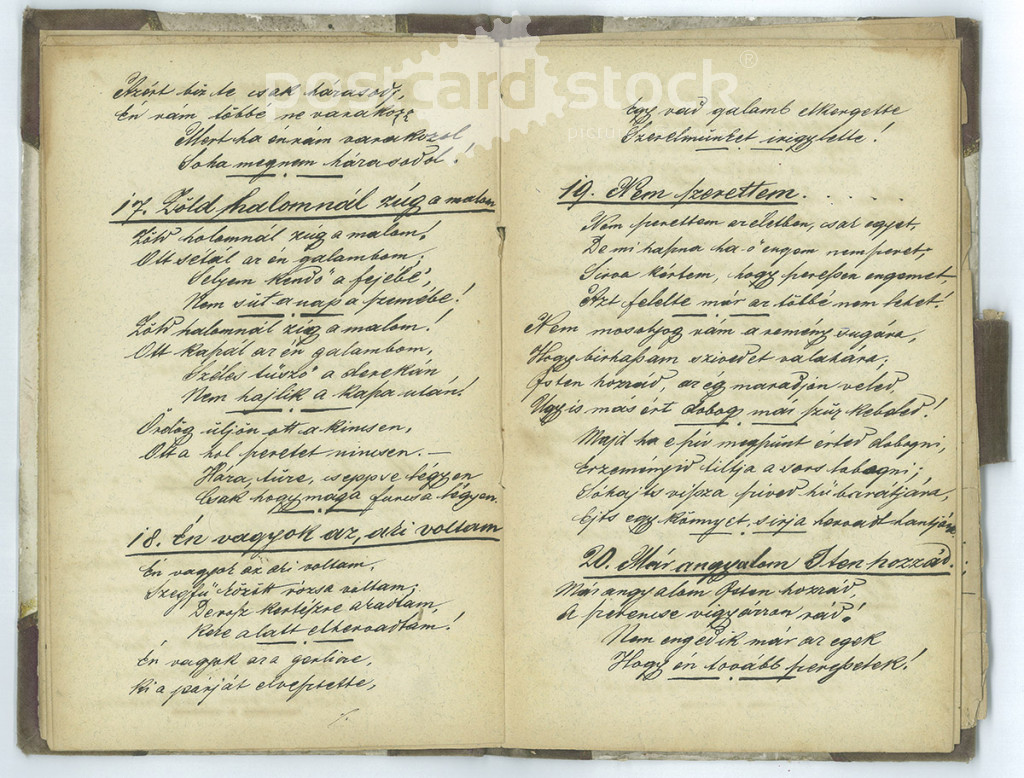 Azért biz te csak házasod,
Én rám többé ne várakozz
Mert ha én rám várakozol
Soha megnem házasodol!
17. Zöld halomnál zúg a malom
Zöld halomnál zúg a malom!
Ott sétál az én galambom;
Selyem kendő a fejébe,
Nem süt a nap a szemébe!
Zöld halomnál zúg a malom!
Ott kapál az én galambom,
Széles tüsző a derekán
Nem hajlik a kapa után!
Ördög üljön ott a kincsen,
Ott a hol szeretet nincsen. —
Háza, tüze, cseppse légyen
Csak hogy maga furcsa légyen.
18. Én vagyok az, aki voltam
Én vagyok az aki voltam,
Szegfű között rózsa voltam;
De rosz kertészre akadtam,
Keze alatt elhervadtam!
Én vagyok az a gerlice,
Ki a párját elvesztette,
Egy vad galamb elkergette
Szerelmünket irigylette!
19. Nem szerettem.....
Nem szerettem az életben, csak egyet,
De mi haszna ha ő engem nem szeret;
Sirva kértem, hogy szeressen engemet,
Azt felelte már az többé nem lehet!
Nem mosolyog rám a remény sugára,
Hogy birhassam szivedet valahára;
Isten hozzád, az ég maradjon veled
Ugy is más ért dobog már szűz kebled!
Majd ha e szív megszünt érted dobogni,
érzeményid tiltja a sors lobogni;
Sóhajts vissza szíved hű barátjára,
Ejts egy könnyet, sirja hervadt hantjára
20. Már angyalom Isten hozzád.
Már angyalom Isten hozzád,
A szerencse vigyorron rád!
Nem engedik már az egek
Hogy én tovább szeresselek!
postcard stock®